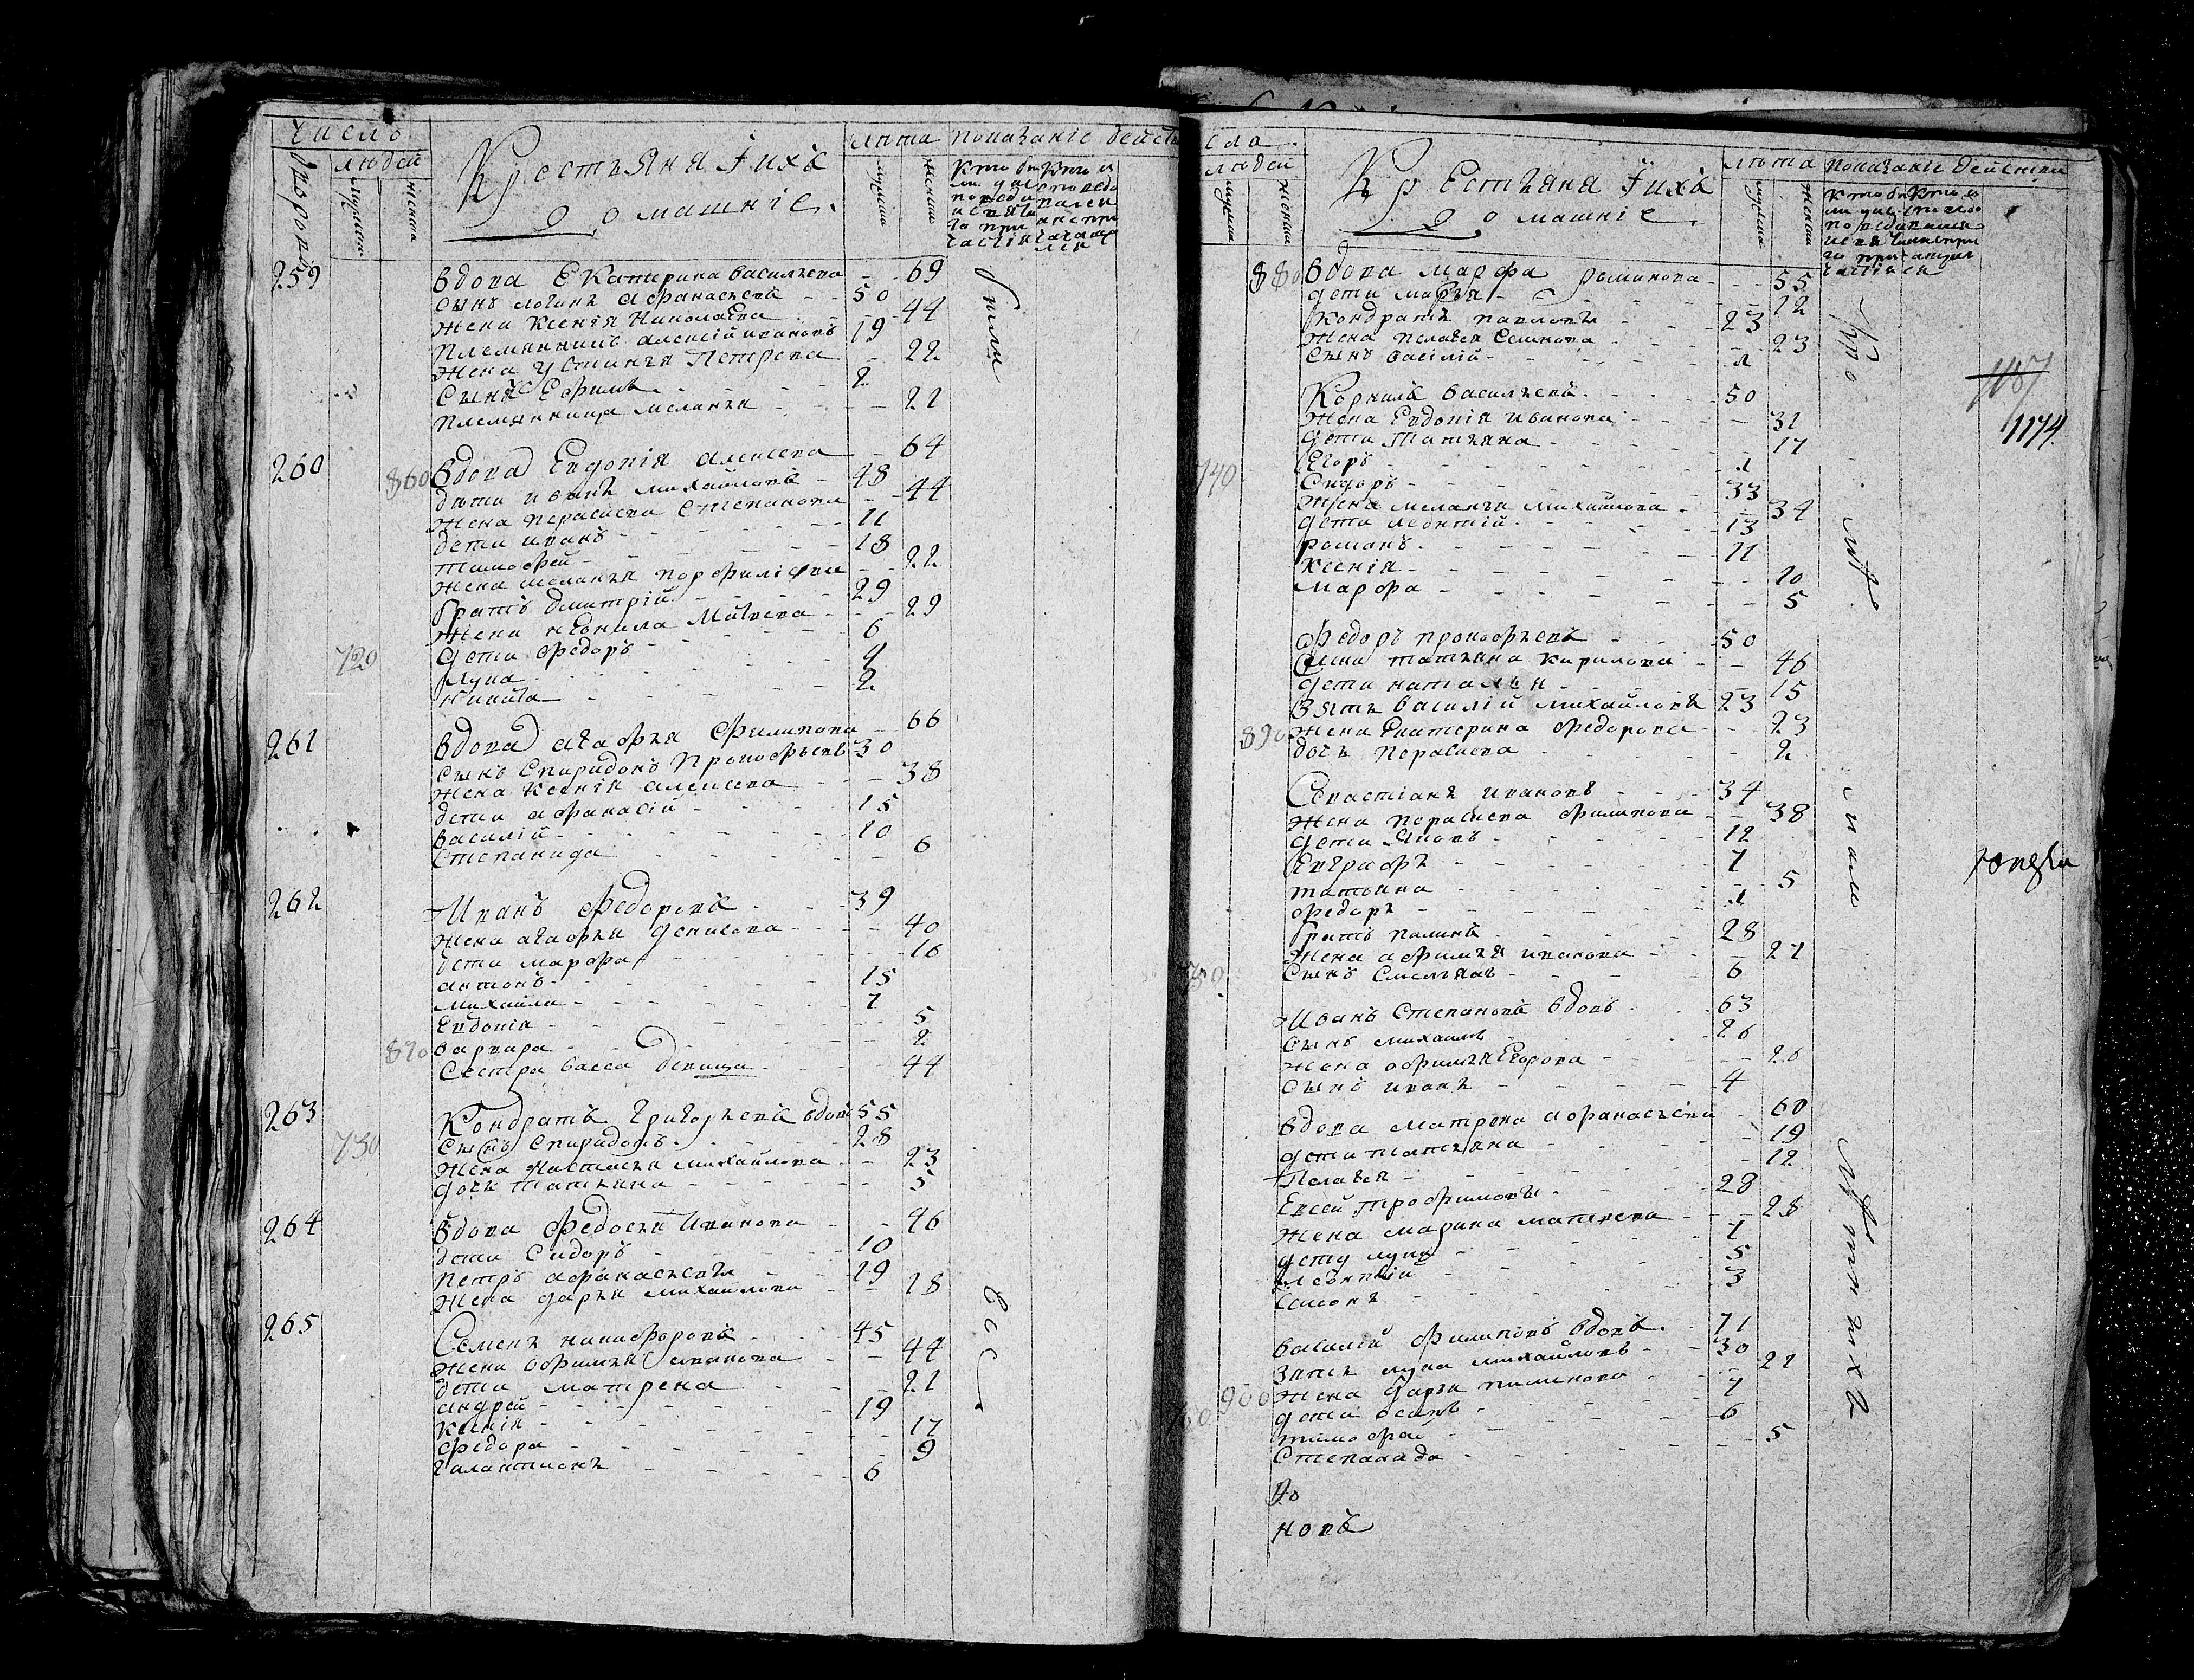 Число
людей
лѣта Показаніе дейст
дворовъ
мужска
женска
Крестьяня Ихъ
домашніе.
мужска
женска
259 Вдова Екатерина васильева - - 69
сынъ логинъ Афанасьевъ - - 50
жена Ксенія Николаева - - 44
Племянникъ алексій ивановъ 19
жена устинья Петрова - 22
Сынъ Ефимъ - 2
Племянница меланья - - 21
260 860 Вдова Евдокія алексева - 64
дѣти иванъ михайловъ - 48
жена Параскева Степанова - - 44
дети иванъ - 11
тимофей - 18
жена меланья порфиліева - - 22
братъ дмитрій - 29
жена неонила Матвева - - 29
720 дети федоръ - 6
лука - 4
никита - 2
261 вдова агафья филипова - 66
сынъ Спиридонъ Прокофьевъ 30
жена Ксенія алексева - - 38
дети афанасій - 15
василій - 10
степанида - 6
262 Иванъ Федоровъ - 39
жена агафья денисова - - 40
дети марфа - 16
антонъ - 15
михайла - 7
Евдокія - 5
870 варвара - 2
Сестра васса девица - 44
263 Кондратъ Григорьевъ вдовъ 55
730 Сынъ Спиридонъ - 28
жена Настасья михайлова - - 23
дочь татьяна - 5
264 Вдова Федосья Иванова - - 46
дети Сидоръ - 10
Петръ афанасьевъ - 19
жена дарья михайлова - - 18
265 Семенъ никифоровъ - 45
жена Офимья иванова - - 44
дети матрена - 21
андрей - 19
Ксенія - 17
федора - 9
галактионъ - 6
были
все
сла
людей
лѣта Показаніе действи
мужска
женска
Крестьяня Ихъ
домашніе.
мужска
женска
880 Вдова марфа романова - - 55
дети марья - 12
Кондратъ павловъ - 23
жена пелагея Семенова - - 23
Сынъ василій - 1
Корнилъ васильевъ - 50
жена Евдокія иванова - 31
дети татьяна - 17
Егоръ - 1
740 Сидоръ - 33
жена меланья михайлова - 34
дети леонтій - 13
романъ - 11
Ксенія - 10
марфа - 5
федоръ прокофьевъ - 50
жена татьяна кирилова - 46
дети наталья - 15
Зять василій михайловъ 23
890 жена Екатерина федорова - 23
дочь Параскева - 2
Севастіанъ ивановъ - 34
жена Параскева филипова - 38
дети Яковъ - 12
Евграфъ - 7
татьяна - 5
федоръ - 1
братъ палинъ - 28
жена афимья иванова - 27
750 Сынъ Емельянъ - 6
Иванъ Степановъ вдовъ - 63
сынъ михайлъ - 26
жена офимья Егорова - 26
сынъ иванъ - 4
вдова матрена афанасьева - 60
дети татьяна - 19
Пелагея - 12
Евсей трофимовъ - 28
жена марина матвеева - 28
дети лука - 7
леонтій - 5
самонъ - 3
василій филиповъ вдовъ - 71
Зять лука михайловъ - 30
900 жена дарья пименова - 22
дети осипъ - 7
тимофей - 6
Степанида - 5
но
новъ
1187
1174